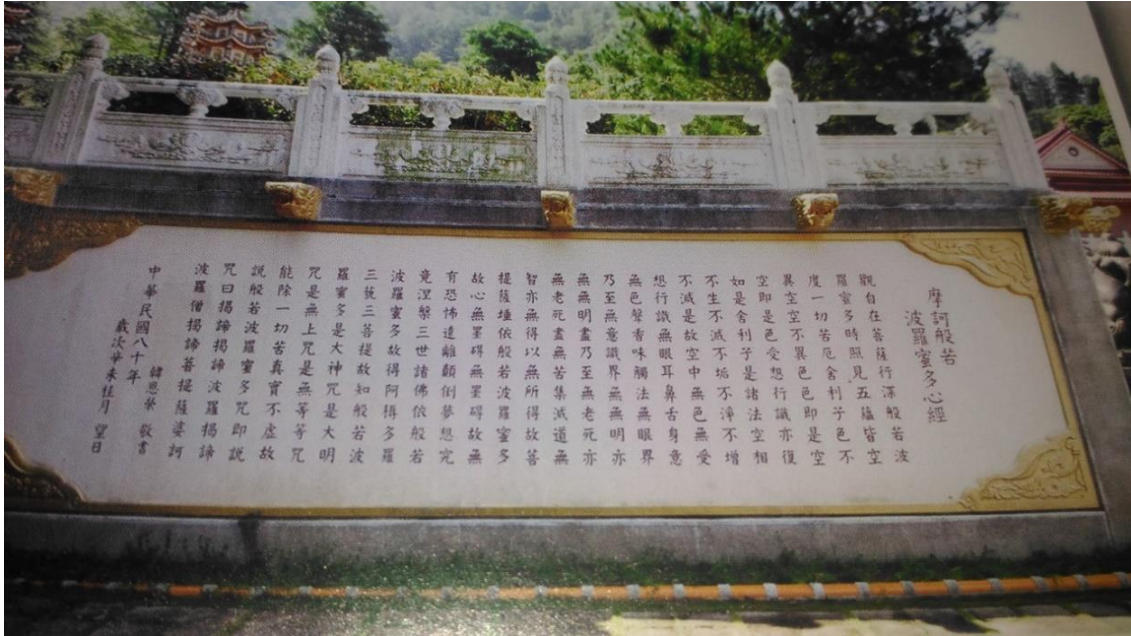 摩訶般若
波羅蜜多心經
觀自在菩薩行深般若波
羅蜜多時照見五蘊皆空
度一切苦厄舍利子色不
異空空不異色色即是空
空即是色受想行識亦復
如是舍利子是諸法空相
不生不滅不垢不淨不增
不減是故空中無色無受
想行識無眼耳鼻舌身意
無色聲香味觸法無眼界
乃至無意識界無無明亦
無無明盡乃至無老死亦
無老死盡無苦集滅道無
智亦無得以無所得故菩
提薩埵依般若波羅蜜多
故心無罣碍無罣碍故無
有恐怖遠離顛倒夢想究
竟涅槃三世諸佛依般若
波羅蜜多故得阿耨多羅
三藐三菩提故知般若波
羅蜜多是大神咒是大明
咒是無上咒是無等等咒
能除一切苦真實不虛故
說般若波羅蜜多咒即說
咒曰揭諦揭諦波羅揭諦
波羅僧揭諦菩提薩婆訶
中華民國八十年 韓恩榮 敬書
歲次辛未桂月 望日